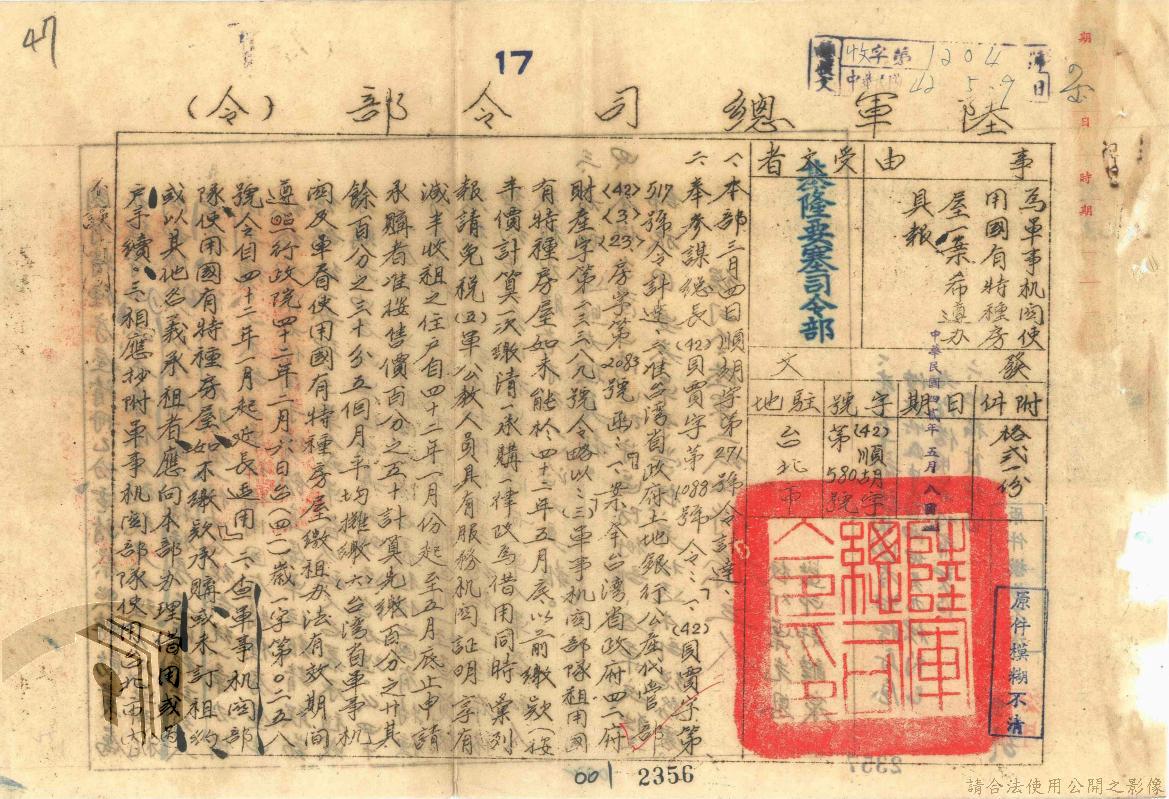 47
17
收字第1204號
42 5.9日
陸軍總司令部(令)
事由
為軍事机関使
用國有特種房
屋一案希遵办
具報
受文者
基隆要塞司令部
發文
附件
格式一份
日期
中華民國四二年五月八日
字號
(42)順朗字
第580號
駐地
台北市
陸軍總司令部印
一、本部三月四日順朗字第271號令計達
二、奉參謀總長(42)貝賈字第1088號令:「一、(42)貝賈字第
517號令計達二、准台湾省政府土地銀行公產代管部
(42)(3)(23)房字第2083號函:「一、案奉台湾省政府四二府
財產字第一三三八九號令略以:(三)軍事机関部隊租用國
有特種房屋如未能於四十二年五月底以前繳款(按
半價計算一次繳清)承購一律改為借用同時彙列
報請免稅(五)軍公教人員具有服務机関証明享有
減半收租之住戶自四十二年一月份起至五月底止申請
承購者准按售價百分之五十計算先繳百分之廿其
餘百分之三十分五個月平均攤繳(六)台湾省軍事机
関及軍眷使用國有特種房屋繳租办法有效期间
遵照行政院四十二年二月六日台(四二)歲字第〇二五八
號令自四十二年一月起延長适用』二、查軍事机関部
隊使用國有特種房屋如不繳款承購或未訂租約
或以其他名義承租者應向本部办理借用或過
戶手續」三、相應抄附軍事机関部隊使用台北市內
原件模糊不清
001
2356
2357
請合法使用公開之影像